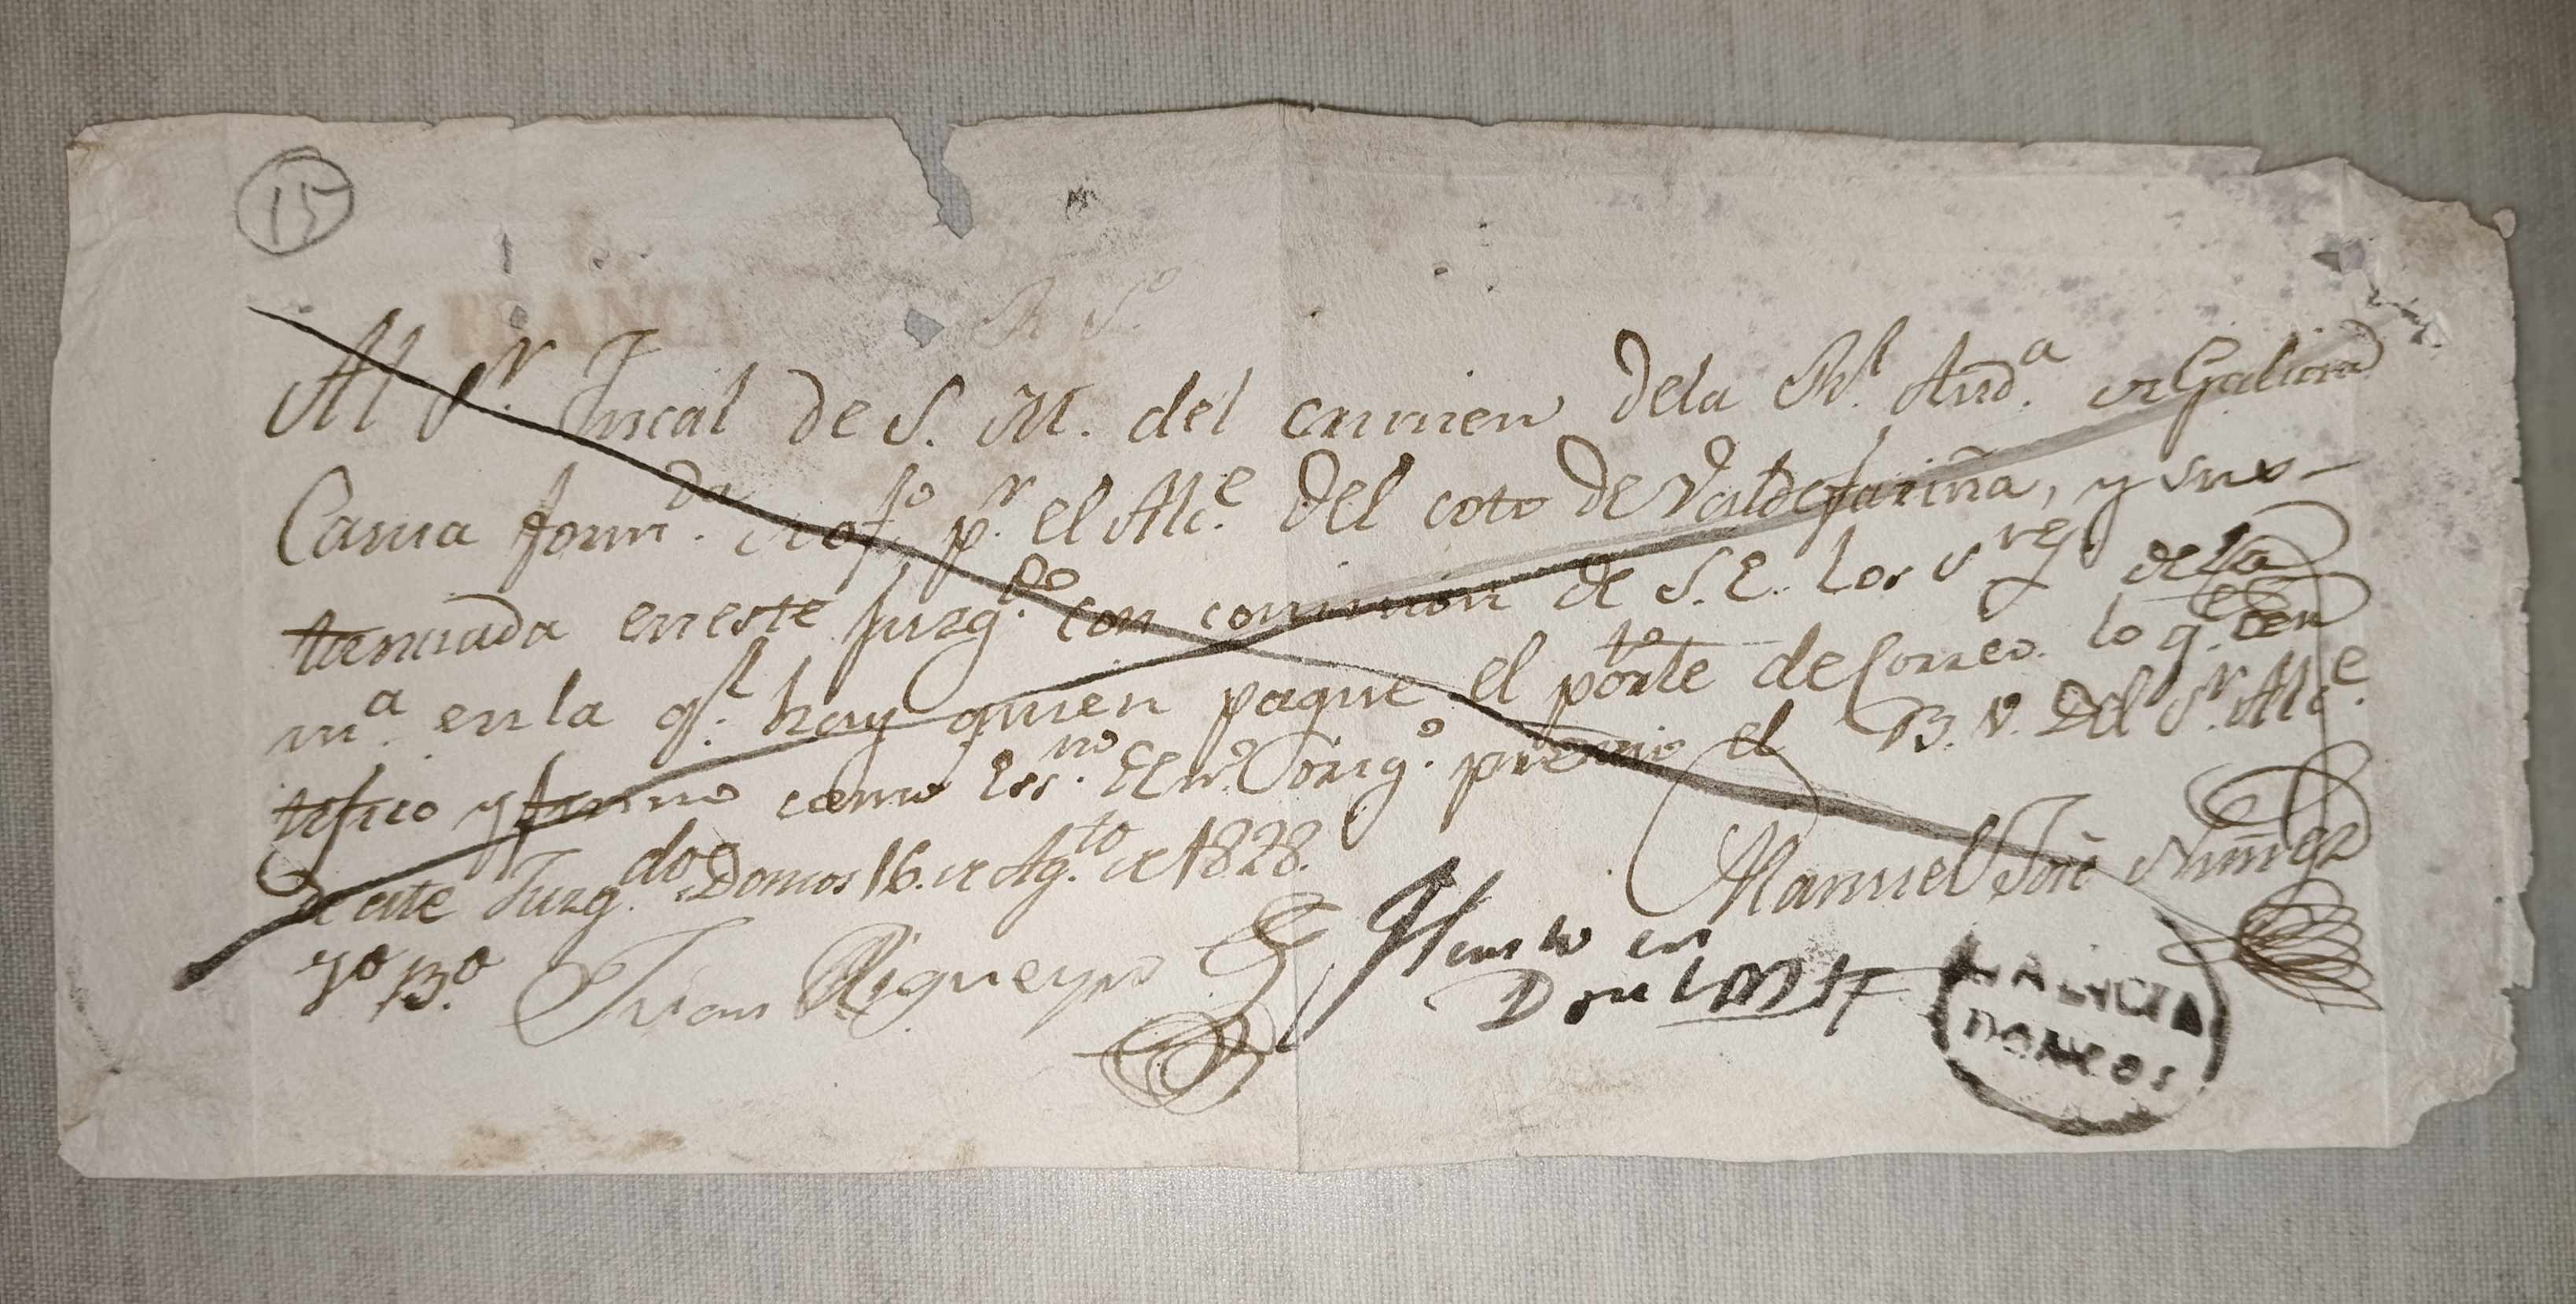 15
FRANCA
Al Sr. Fiscal de S. M. del crimen dela Rl. Aud.a de Galicia
Causa form.da de of.o pr. el Alc.e del coto de Valdefariña, y sus-
tanciada en este Juzg.do con comision de S. E. los S.res de la
m.a en la ql. hay quien pague el porte de Correo. lo q.e cer
tifico y firmo como Ess.no El mo. Orig.o previo el B. V. del Sr. Alc.e
de este Juzg.do Doncos 16. de Ag.to de 1828.
Manuel José Nuñez
Vo. Bo. Juan Rigueyro
en
GALICIA
DONCOS